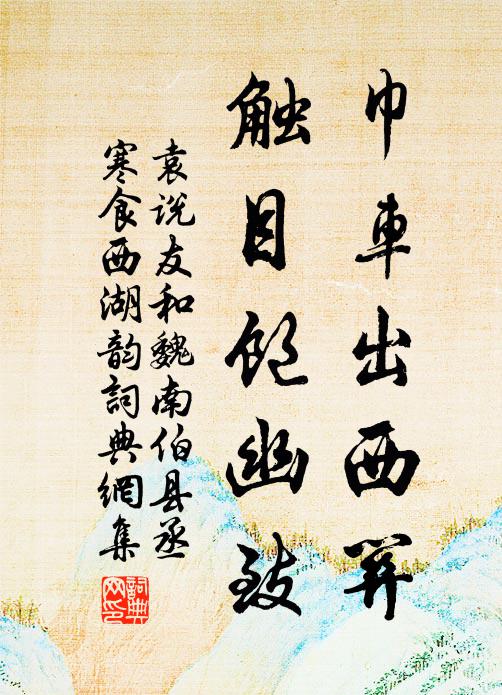 巾車出西関
触目饱幽致
袁说友和魏南伯县丞
寒食西湖韵詞典網集
詞典网印